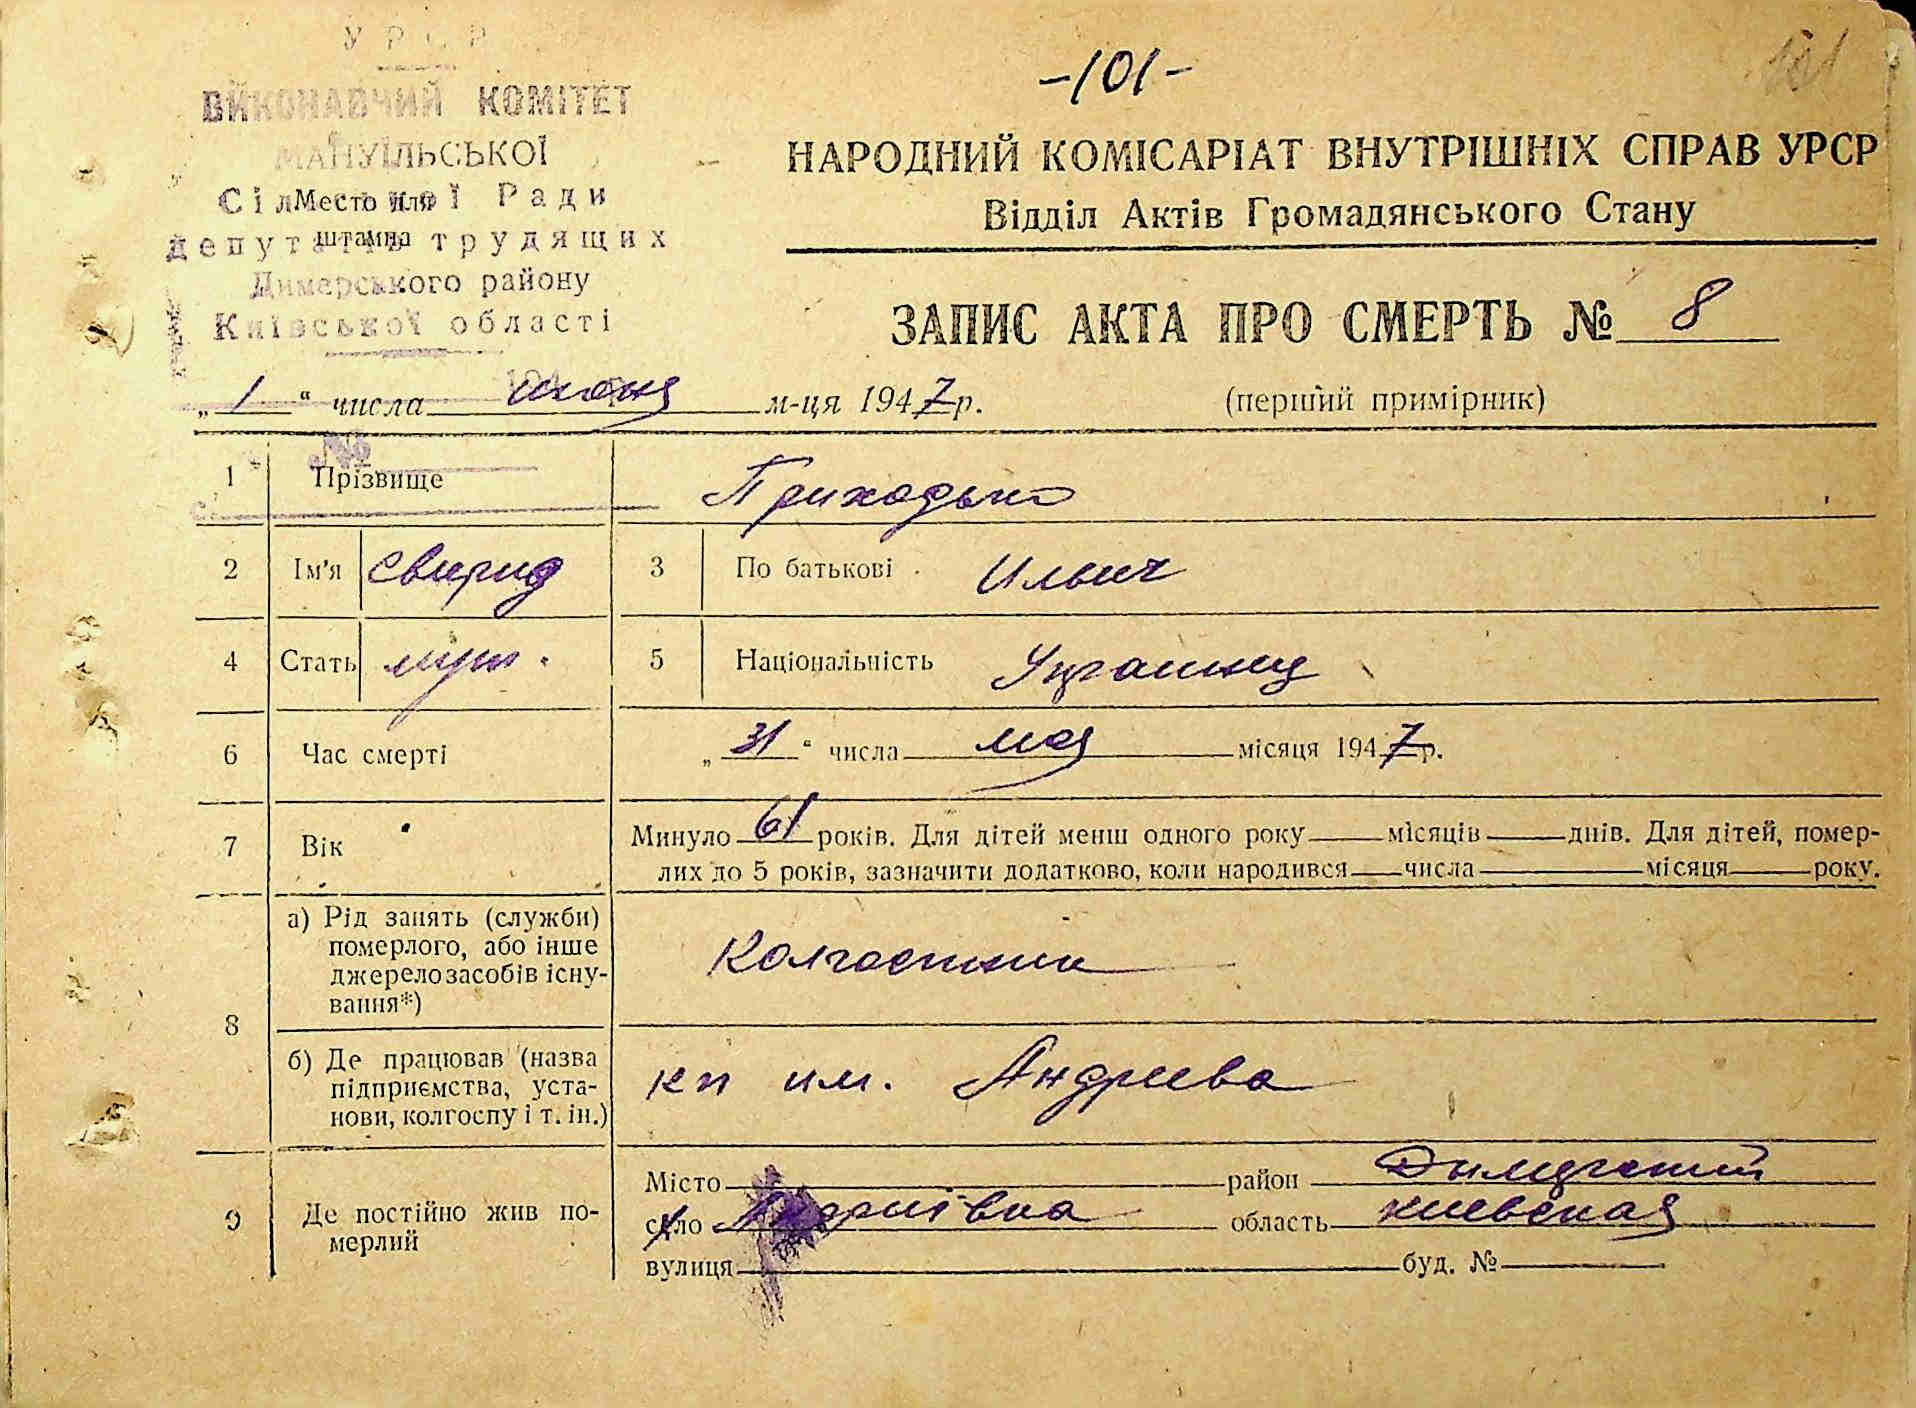 УРСР
ВИКОНАВЧИЙ КОМІТЕТ
МАНУЇЛЬСЬКОЇ
Сільської Ради
Место или
депутатів трудящих
штампа
Димерського району
Київської області
-101-
101
НАРОДНИЙ КОМІСАРІАТ ВНУТРІШНІХ СПРАВ УРСР
Відділ Актів Громадянського Стану
ЗАПИС АКТА ПРО СМЕРТЬ № 8
„1“ числа июня м-ця 1947 р. (перший примірник)
№
1 Прізвище Приходько
2 Ім'я Свирид 3 По батькові Ильич
4 Стать муж. 5 Національність Украинец
6 Час смерті „31“ числа мая місяця 1947 р.
7 Вік Минуло 61 років. Для дітей менш одного року місяців днів. Для дітей, помер-
лих до 5 років, зазначити додатково, коли народився числа місяця року.
8 а) Рід занять (служби)
померлого, або інше
джерело засобів існу-
вання*)
Колгоспник
б) Де працював (назва
підприємства, уста-
нови, колгоспу і т. ін.)
кп им. Андреева
9 Де постійно жив по-
мерлий
Місто район Димерский
село область киевская
вулиця буд. №